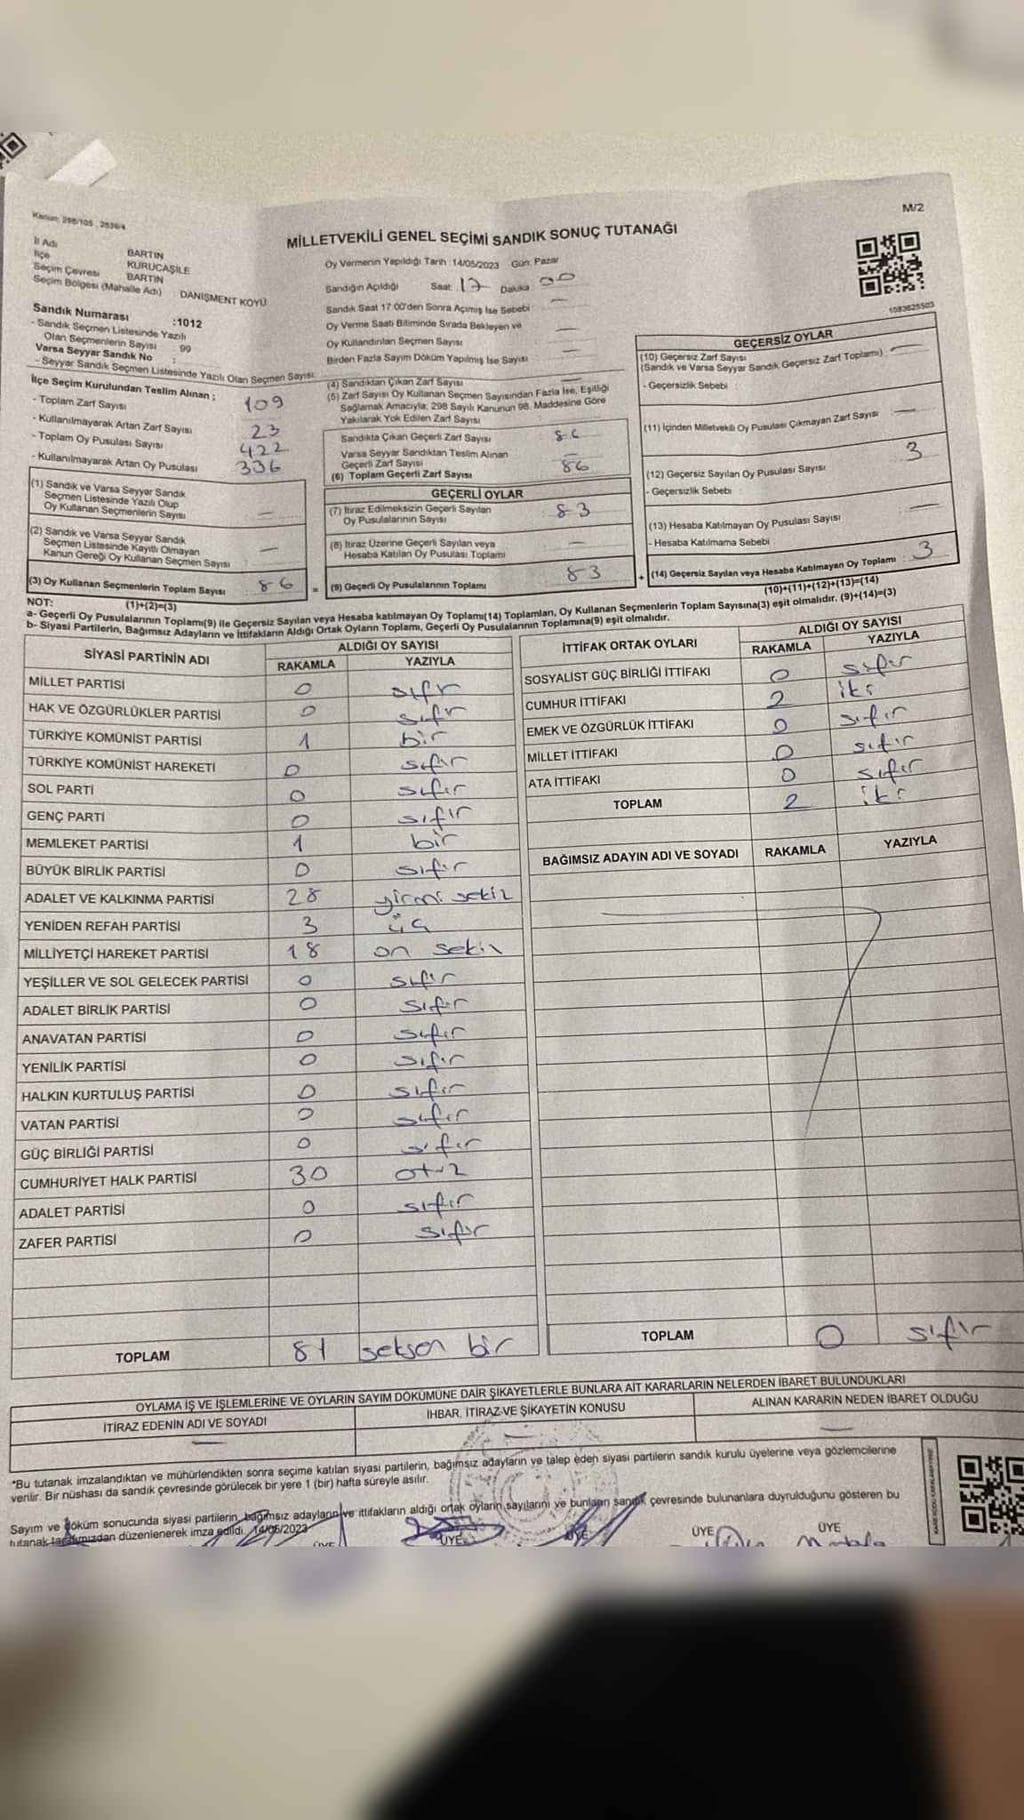 Kanun: 298/105, 2839/4
M/2
MİLLETVEKİLİ GENEL SEÇİMİ SANDIK SONUÇ TUTANAĞI
İl Adı BARTIN
İlçe KURUCAŞİLE
Seçim Çevresi BARTIN
Seçim Bölgesi (Mahalle Adı) DANIŞMENT KÖYÜ
Sandık Numarası :1012
- Sandık Seçmen Listesinde Yazılı
Olan Seçmenlerin Sayısı : 99
Varsa Seyyar Sandık No :
- Seyyar Sandık Seçmen Listesinde Yazılı Olan Seçmen Sayısı:
Oy Vermenin Yapıldığı Tarih :14/05/2023 Gün: Pazar
Sandığın Açıldığı Saat 17 Dakika 00
Sandık Saat 17:00'den Sonra Açılmış İse Sebebi —
Oy Verme Saati Bitiminde Sırada Bekleyen ve
Oy Kullandırılan Seçmen Sayısı —
Birden Fazla Sayım Döküm Yapılmış İse Sayısı —
1083625503
İlçe Seçim Kurulundan Teslim Alınan ;
- Toplam Zarf Sayısı 109
- Kullanılmayarak Artan Zarf Sayısı 23
- Toplam Oy Pusulası Sayısı 422
- Kullanılmayarak Artan Oy Pusulası 336
(1) Sandık ve Varsa Seyyar Sandık
Seçmen Listesinde Yazılı Olup
Oy Kullanan Seçmenlerin Sayısı —
(2) Sandık ve Varsa Seyyar Sandık
Seçmen Listesinde Kayıtlı Olmayan
Kanun Gereği Oy Kullanan Seçmen Sayısı —
(3) Oy Kullanan Seçmenlerin Toplam Sayısı 86 =
(1)+(2)=(3)
(4) Sandıktan Çıkan Zarf Sayısı —
(5) Zarf Sayısı Oy Kullanan Seçmen Sayısından Fazla İse, Eşitliği
Sağlamak Amacıyla, 298 Sayılı Kanunun 98. Maddesine Göre
Yakılarak Yok Edilen Zarf Sayısı
Sandıkta Çıkan Geçerli Zarf Sayısı 86
Varsa Seyyar Sandıktan Teslim Alınan
Geçerli Zarf Sayısı —
(6) Toplam Geçerli Zarf Sayısı 86
GEÇERLİ OYLAR
(7) İtiraz Edilmeksizin Geçerli Sayılan
Oy Pusulalarının Sayısı 83
(8) İtiraz Üzerine Geçerli Sayılan veya
Hesaba Katılan Oy Pusulası Toplamı —
(9) Geçerli Oy Pusulalarının Toplamı 83 +
GEÇERSİZ OYLAR
(10) Geçersiz Zarf Sayısı
(Sandık ve Varsa Seyyar Sandık Geçersiz Zarf Toplamı) —
- Geçersizlik Sebebi :
(11) İçinden Milletvekili Oy Pusulası Çıkmayan Zarf Sayısı —
(12) Geçersiz Sayılan Oy Pusulası Sayısı 3
- Geçersizlik Sebebi :
(13) Hesaba Katılmayan Oy Pusulası Sayısı —
- Hesaba Katılmama Sebebi
(14) Geçersiz Sayılan veya Hesaba Katılmayan Oy Toplamı : 3
(10)+(11)+(12)+(13)=(14)
NOT:
a- Geçerli Oy Pusulalarının Toplamı(9) ile Geçersiz Sayılan veya Hesaba katılmayan Oy Toplamı(14) Toplamları, Oy Kullanan Seçmenlerin Toplam Sayısına(3) eşit olmalıdır. (9)+(14)=(3)
b- Siyasi Partilerin, Bağımsız Adayların ve İttifakların Aldığı Ortak Oyların Toplamı, Geçerli Oy Pusulalarının Toplamına(9) eşit olmalıdır.
SİYASİ PARTİNİN ADI ALDIĞI OY SAYISI
RAKAMLA YAZIYLA
MİLLET PARTİSİ 0 sıfır
HAK VE ÖZGÜRLÜKLER PARTİSİ 0 sıfır
TÜRKİYE KOMÜNİST PARTİSİ 1 bir
TÜRKİYE KOMÜNİST HAREKETİ 0 sıfır
SOL PARTİ 0 sıfır
GENÇ PARTİ 0 sıfır
MEMLEKET PARTİSİ 1 bir
BÜYÜK BİRLİK PARTİSİ 0 sıfır
ADALET VE KALKINMA PARTİSİ 28 yirmi sekiz
YENİDEN REFAH PARTİSİ 3 üç
MİLLİYETÇİ HAREKET PARTİSİ 18 on sekiz
YEŞİLLER VE SOL GELECEK PARTİSİ 0 sıfır
ADALET BİRLİK PARTİSİ 0 sıfır
ANAVATAN PARTİSİ 0 sıfır
YENİLİK PARTİSİ 0 sıfır
HALKIN KURTULUŞ PARTİSİ 0 sıfır
VATAN PARTİSİ 0 sıfır
GÜÇ BİRLİĞİ PARTİSİ 0 sıfır
CUMHURİYET HALK PARTİSİ 30 otuz
ADALET PARTİSİ 0 sıfır
ZAFER PARTİSİ 0 sıfır
TOPLAM 81 seksen bir
İTTİFAK ORTAK OYLARI ALDIĞI OY SAYISI
RAKAMLA YAZIYLA
SOSYALİST GÜÇ BİRLİĞİ İTTİFAKI 0 sıfır
CUMHUR İTTİFAKI 2 iki
EMEK VE ÖZGÜRLÜK İTTİFAKI 0 sıfır
MİLLET İTTİFAKI 0 sıfır
ATA İTTİFAKI 0 sıfır
TOPLAM 2 iki
BAĞIMSIZ ADAYIN ADI VE SOYADI RAKAMLA YAZIYLA
TOPLAM 0 sıfır
OYLAMA İŞ VE İŞLEMLERİNE VE OYLARIN SAYIM DÖKÜMÜNE DAİR ŞİKAYETLERLE BUNLARA AİT KARARLARIN NELERDEN İBARET BULUNDUKLARI
İTİRAZ EDENİN ADI VE SOYADI İHBAR, İTİRAZ VE ŞİKAYETİN KONUSU ALINAN KARARIN NEDEN İBARET OLDUĞU
— — —
*Bu tutanak imzalandıktan ve mühürlendikten sonra seçime katılan siyasi partilerin, bağımsız adayların ve talep eden siyasi partilerin sandık kurulu üyelerine veya gözlemcilerine
verilir. Bir nüshası da sandık çevresinde görülecek bir yere 1 (bir) hafta süreyle asılır.
Sayım ve döküm sonucunda siyasi partilerin, bağımsız adayların ve ittifakların aldığı ortak oyların sayılarını ve bunların sandık çevresinde bulunanlara duyrulduğunu gösteren bu
tutanak tarafımızdan düzenlenerek imza edildi. 14/05/2023
ÜYE ÜYE ÜYE ÜYE ÜYE